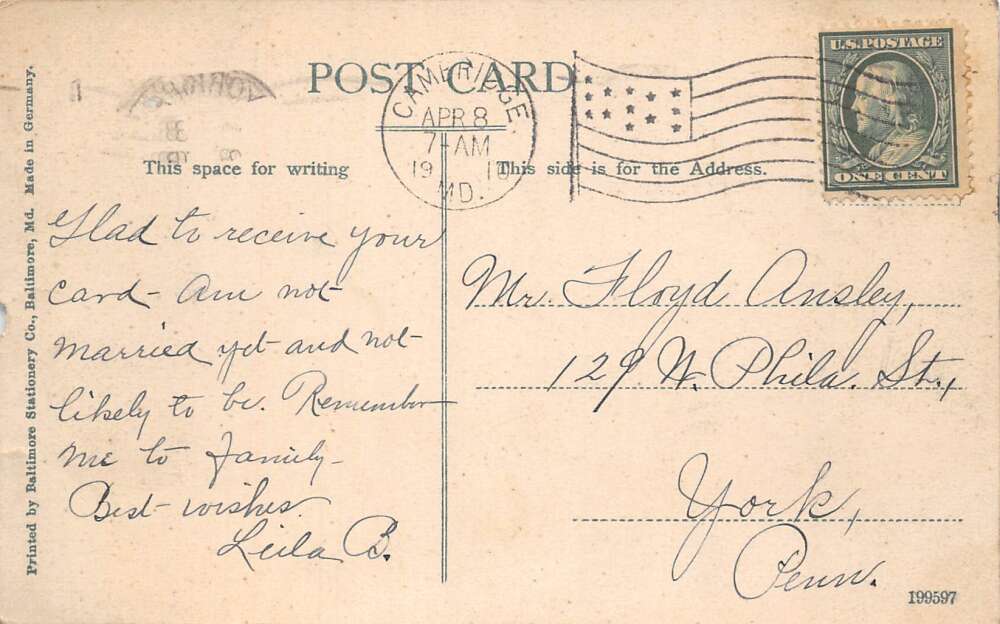 POST CARD
CAMBRIDGE
APR 8
7-AM
1910
MD.
U.S. POSTAGE
ONE CENT
This space for writing
This side is for the Address.
Glad to receive your
card - Am not
married yet and not
likely to be. Remember
me to family -
Best wishes
Leila B.
Mr. Floyd Ansley,
129 W. Phila. St.,
York,
Penn.
199597
Printed by Baltimore Stationery Co., Baltimore, Md. Made in Germany.